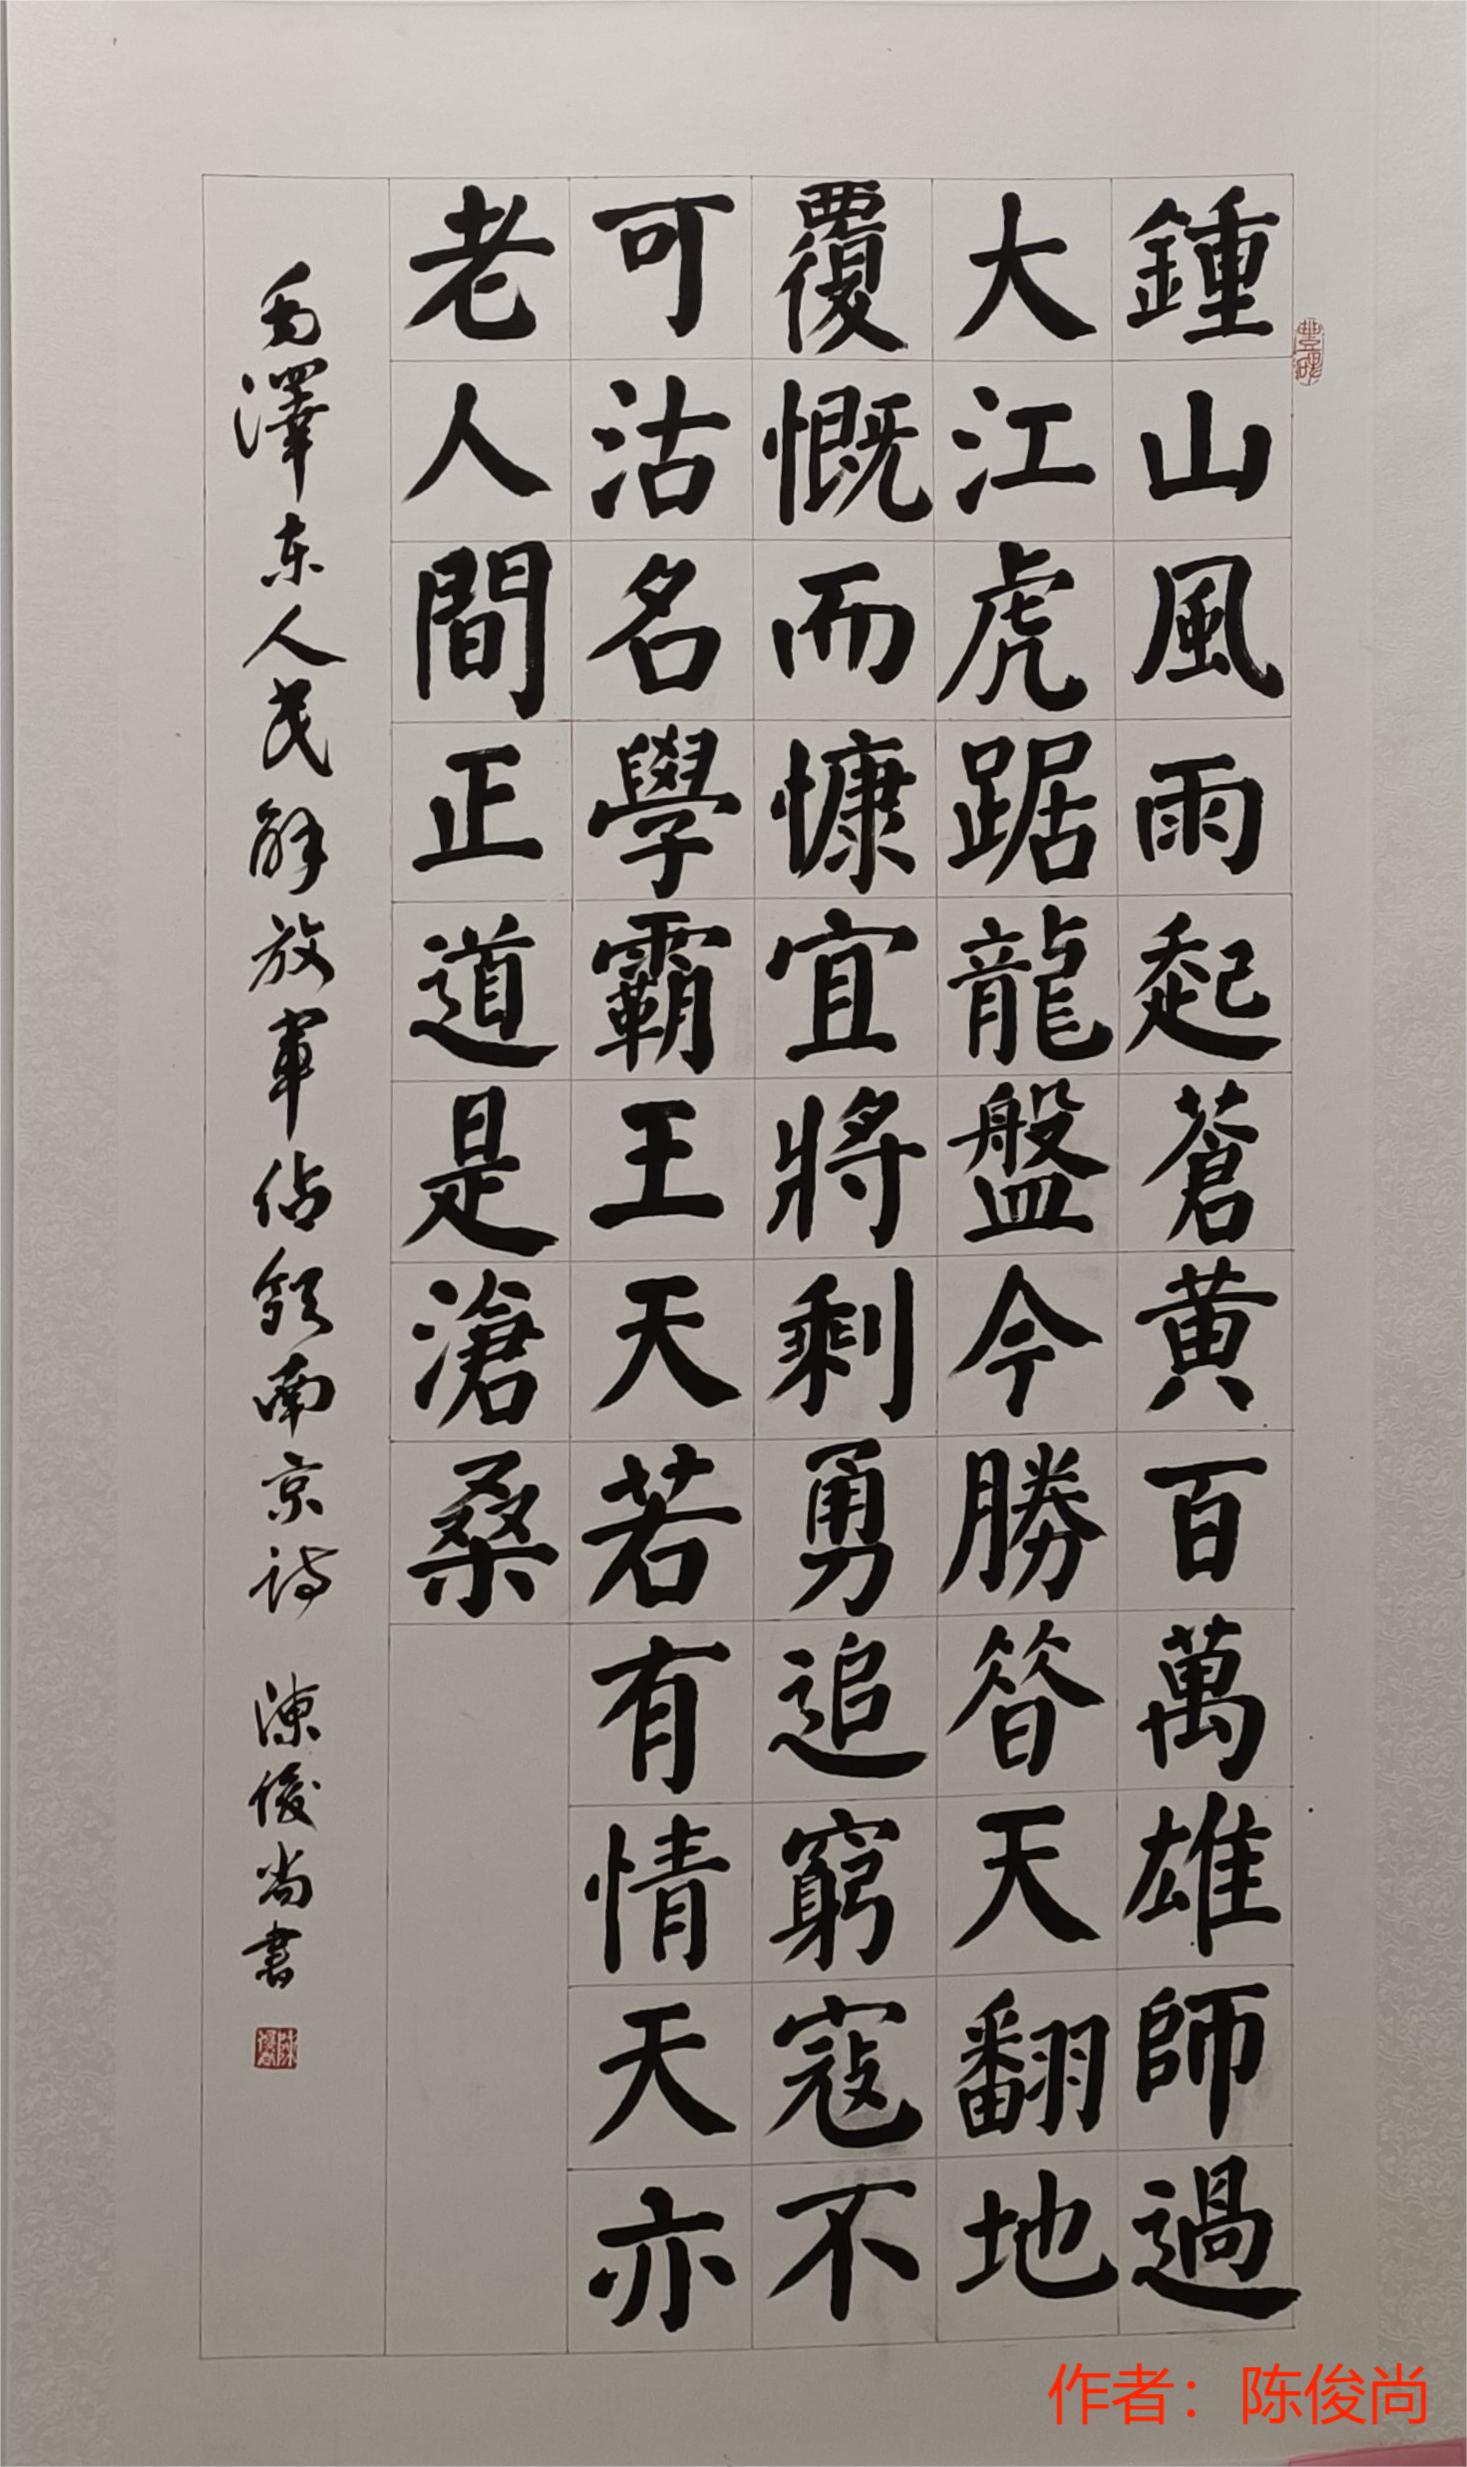 鍾山風雨起蒼黄百萬雄師過
大江虎踞龍盤今勝昝天翻地
覆慨而慷宜將剩勇追窮寇不
可沽名學霸王天若有情天亦
老人間正道是滄桑
毛澤东人民解放軍佔領南京詩 陳俊尚書
作者：陈俊尚